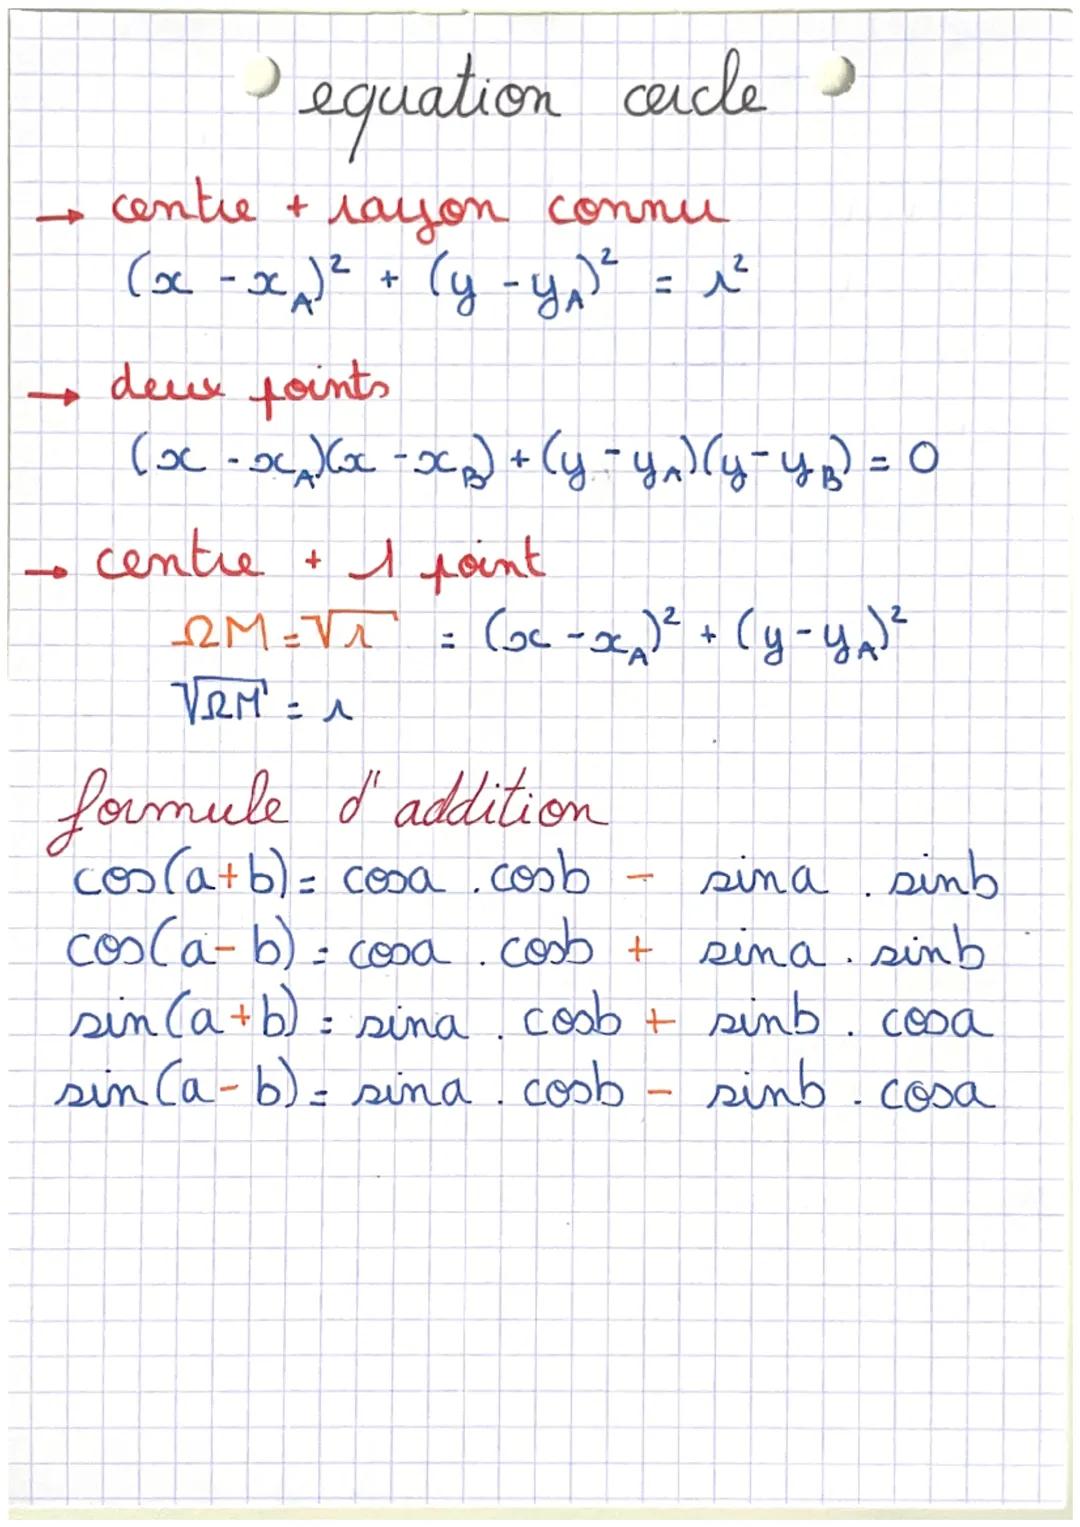 equation cercle
→ centre + rayon connu
(x - x_A)² + (y - y_A)² = r²
→ deux points
(x - x_A)(x - x_B) + (y - y_A)(y - y_B) = 0
→ centre + 1 point
ΩM = √r = (x - x_A)² + (y - y_A)²
√ΩM = r
formule d'addition
cos(a+b) = cosa . cosb - sina . sinb
cos(a-b) = cosa . cosb + sina . sinb
sin(a+b) = sina . cosb + sinb . cosa
sin(a-b) = sina . cosb - sinb . cosa